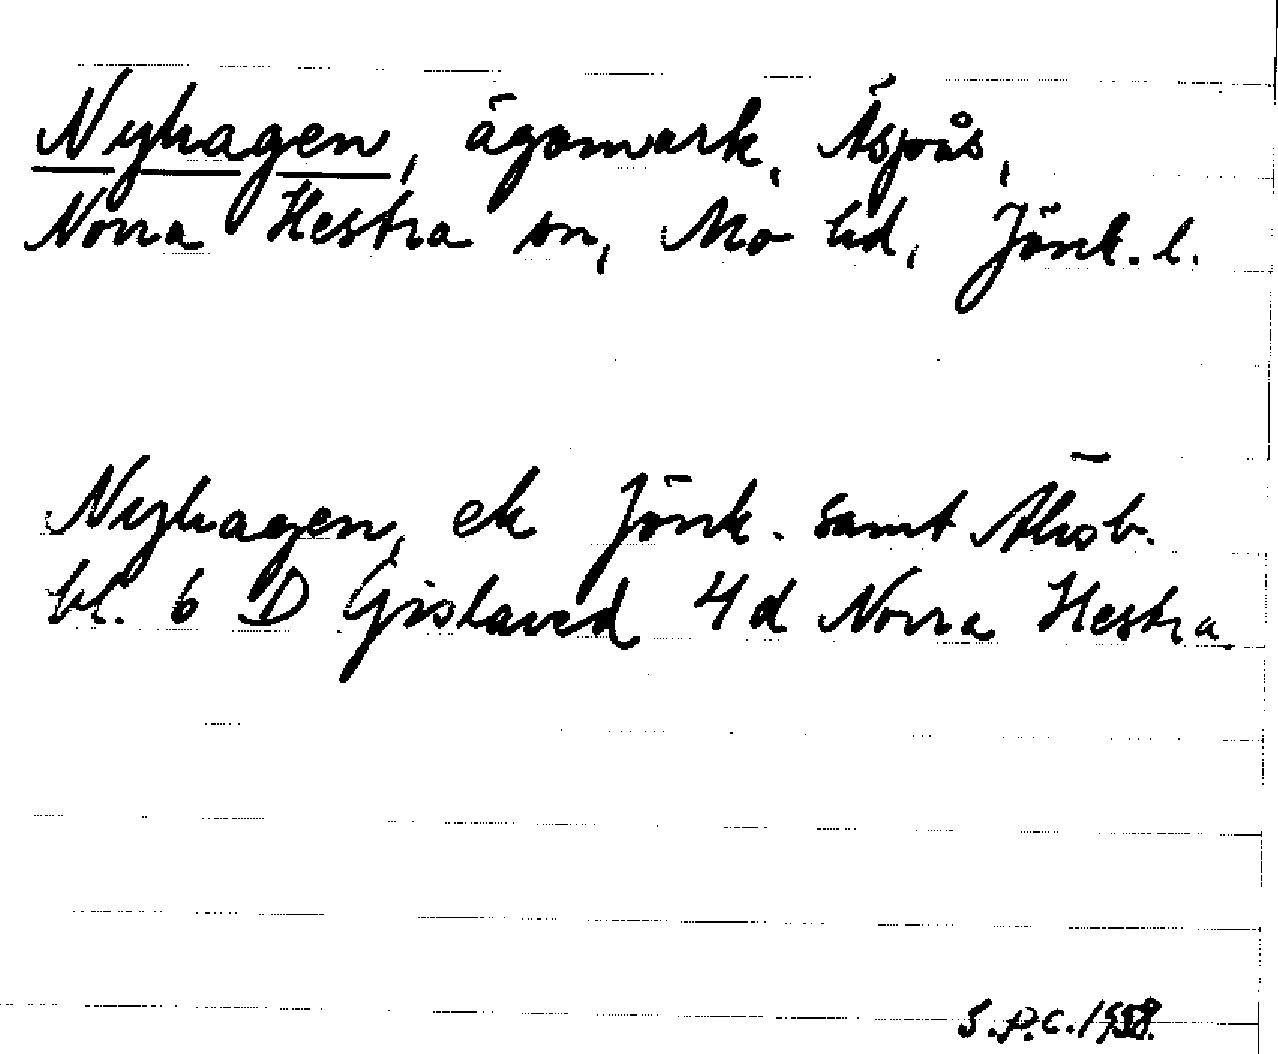 Nyhagen, ägomark, Äspås,
Norra Hestra sn, Mo hd, Jönk. l.
Nyhagen, ek Jönk. samt Älvsb.
bl. 6 D Gislaved 4d Norra Hestra
S.P.C. 1958.